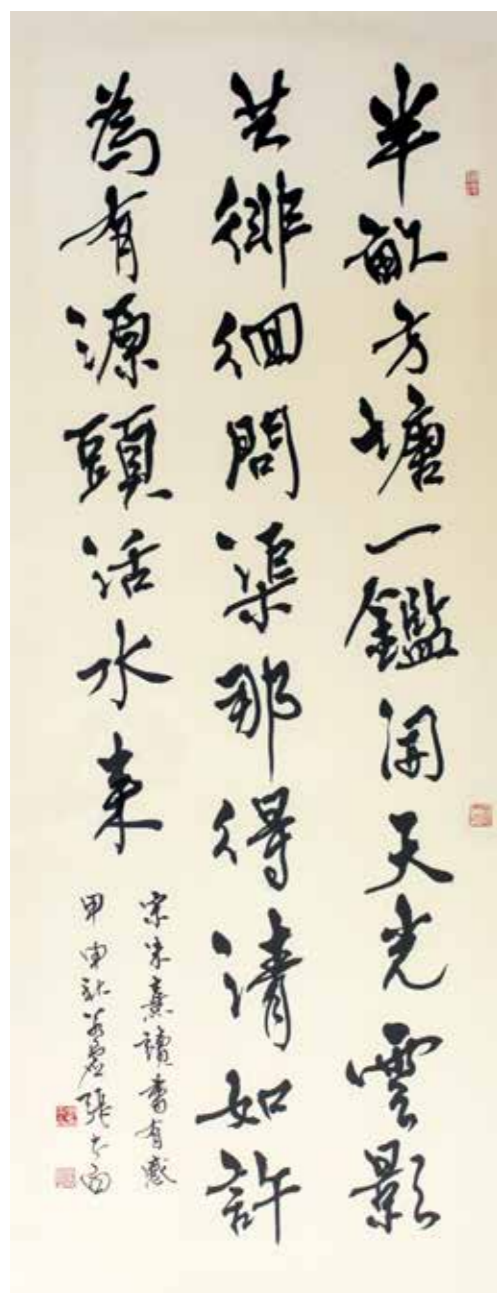 半畝方塘一鑑開天光雲影
共徘徊問渠那得清如許
為有源頭活水來
宋朱熹讀書有感
甲申秋若虛張